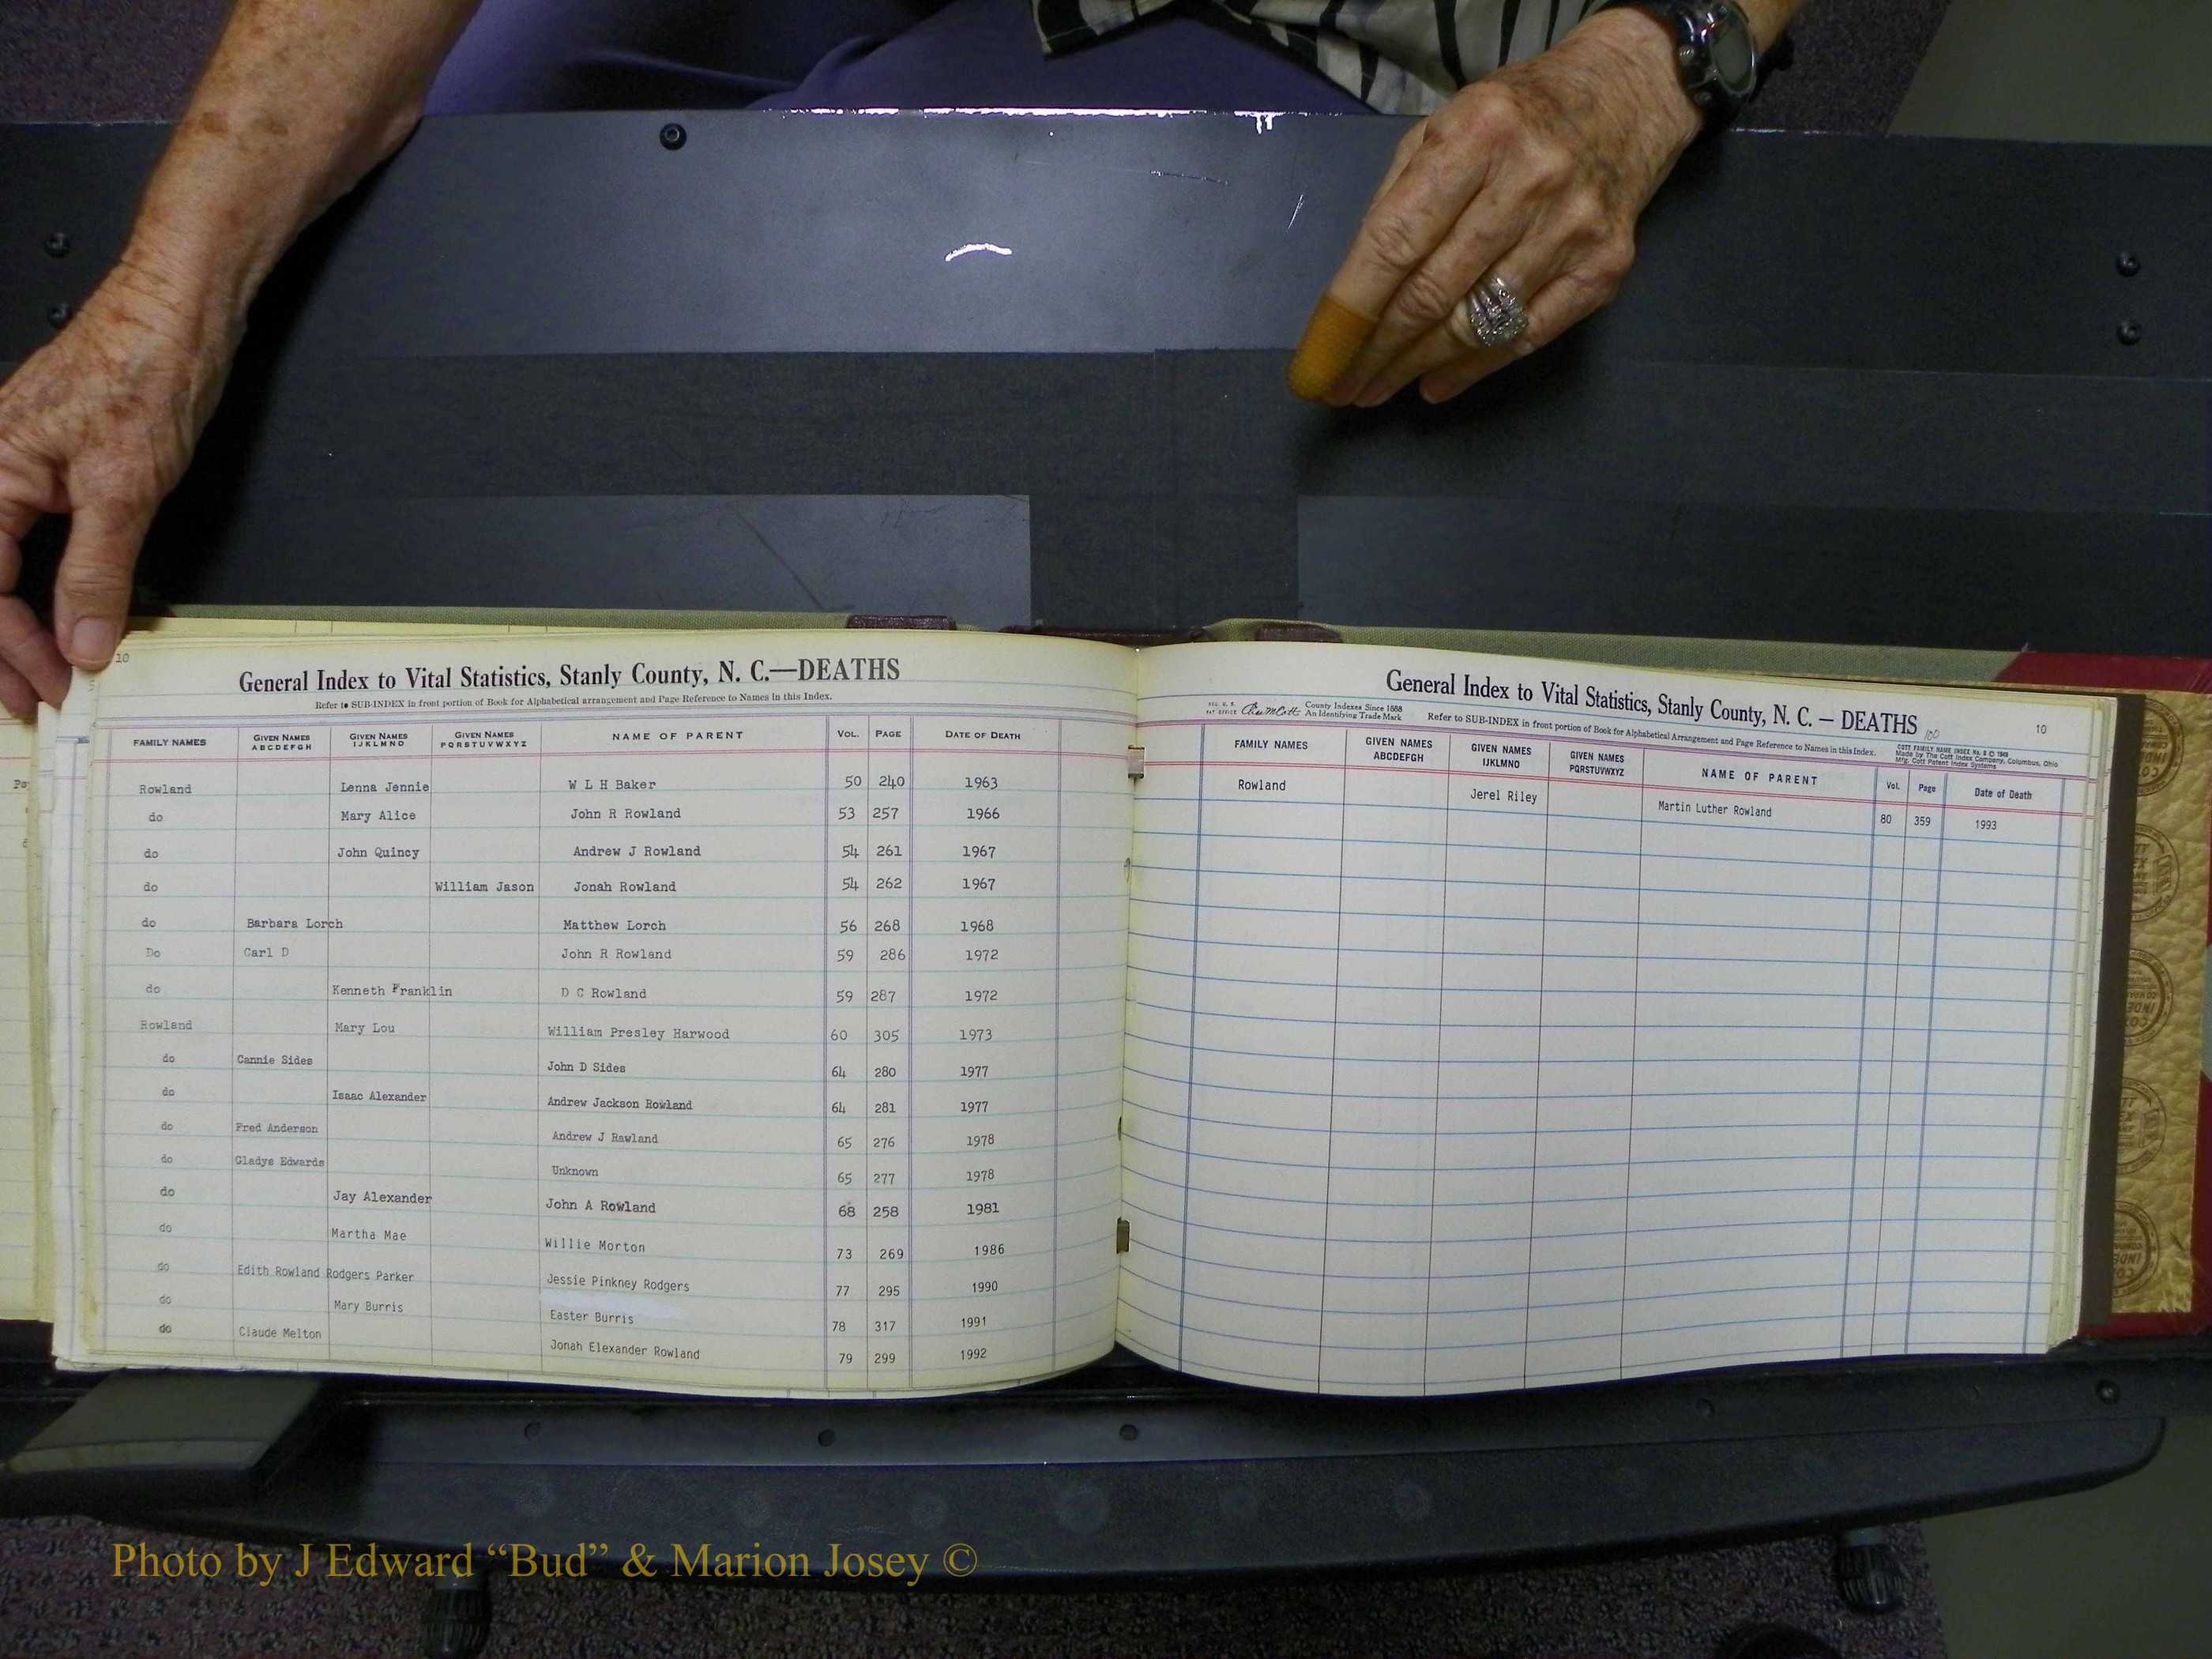 10
General Index to Vital Statistics, Stanly County, N. C.—DEATHS
Refer to SUB-INDEX in front portion of Book for Alphabetical arrangement and Page Reference to Names in this Index.
FAMILY NAMES GIVEN NAMES ABCDEFGH GIVEN NAMES IJKLMNO GIVEN NAMES PQRSTUVWXYZ NAME OF PARENT VOL. PAGE DATE OF DEATH
Rowland Lenna Jennie W L H Baker 50 240 1963
do Mary Alice John R Rowland 53 257 1966
do John Quincy Andrew J Rowland 54 261 1967
do William Jason Jonah Rowland 54 262 1967
do Barbara Lorch Matthew Lorch 56 268 1968
Do Carl D John R Rowland 59 286 1972
do Kenneth Franklin D C Rowland 59 287 1972
Rowland Mary Lou William Presley Harwood 60 305 1973
do Cannie Sides John D Sides 64 280 1977
do Isaac Alexander Andrew Jackson Rowland 64 281 1977
do Fred Anderson Andrew J Rawland 65 276 1978
do Gladys Edwards Unknown 65 277 1978
do Jay Alexander John A Rowland 68 258 1981
do Martha Mae Willie Morton 73 269 1986
do Edith Rowland Rodgers Parker Jessie Pinkney Rodgers 77 295 1990
do Mary Burris Easter Burris 78 317 1991
do Claude Melton Jonah Elexander Rowland 79 299 1992
General Index to Vital Statistics, Stanly County, N. C. — DEATHS
100
10
REG. U. S. PAT OFFICE County Indexes Since 1888 An Identifying Trade Mark
Refer to SUB-INDEX in front portion of Book for Alphabetical Arrangement and Page Reference to Names in this Index.
COTT FAMILY NAME INDEX No. 8 © 1949
Made by The Cott Index Company, Columbus, Ohio
Mfg. Cott Patent Index Systems
FAMILY NAMES GIVEN NAMES ABCDEFGH GIVEN NAMES IJKLMNO GIVEN NAMES PQRSTUVWXYZ NAME OF PARENT Vol. Page Date of Death
Rowland Jerel Riley Martin Luther Rowland 80 359 1993
Photo by J Edward “Bud” & Marion Josey ©